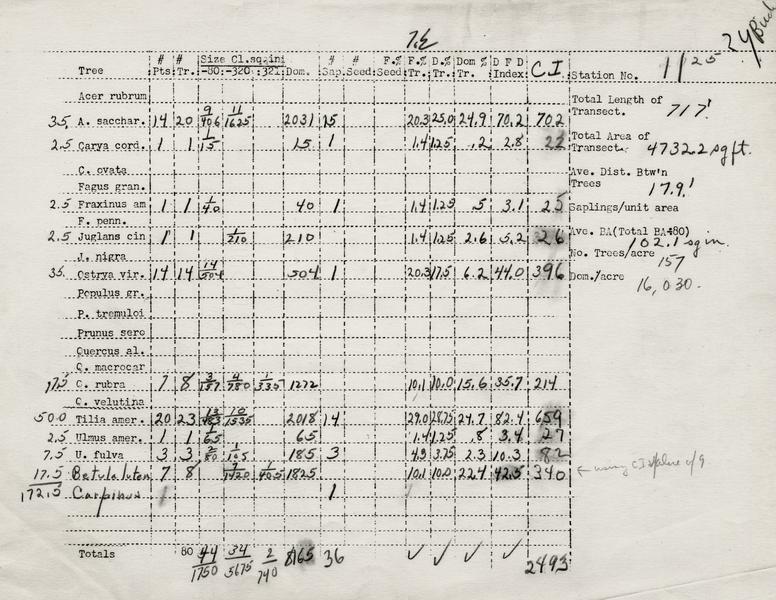 24/Buck
T.L
# # Size Cl.sq.in # # F.% F.% D.% Dom % D F D
Tree Pts. Tr. -80: -320: 321: Dom. Sap. Seed: Seed Tr. Tr. Tr. Index C.I. Station No. 1125
Acer rubrum
Total Length of Transect. 717'
35. A. sacchar. 14 20 9/406 11/1625 2031 15 20.3 25.0 24.9 70.2 702
Total Area of Transect. 47322 sq ft.
2.5 Carya cord. 1 1 1/15 15 1 1.4 1.25 .2 2.8 22
C. ovata
Ave. Dist. Btw'n Trees 17.9'
Fagus gran.
2.5 Fraxinus am 1 1 1/40 40 1 1.4 1.25 .5 3.1 25
Saplings/unit area
F. penn.
2.5 Juglans cin 1 1 1/210 210 1.4 1.25 2.6 5.2 26
Ave. BA(Total BA÷80) 102.1 sq in.
J. nigra
No. Trees/acre 157
35. Ostrya vir. 14 14 14/504 504 1 20.3 17.5 6.2 44.0 396
Dom./acre 16,030.
Populus gr.
P. tremuloi
Prunus sero
Quercus al.
Q. macrocar
17.5 Q. rubra 7 8 3/157 4/780 1/335 1272 10.1 10.0 15.6 35.7 214
Q. velutina
50.0 Tilia amer. 20 23 13/483 10/1535 2018 14 29.0 28.75 24.7 82.4 659
2.5 Ulmus amer. 1 1 1/65 65 1.4 1.25 .8 3.4 27
7.5 U. fulva 3 3 2/80 1/105 185 3 4.3 3.75 2.3 10.3 82
17.5 Betula luten 7 8 7/1420 1/405 1825 10.1 10.0 22.4 42.5 340 ← using CI value of 9
172.5 Carpinus 1 1
Totals 80 44/1750 34/5675 2/740 8165 36 ✓ ✓ ✓ ✓ 2493